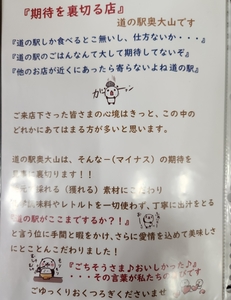 『期待を裏切る店』
道の駅奥大山です
『道の駅しか食べるとこ無いし、仕方ないか・・・』
『道の駅のごはんなんて大して期待してないぞ』
『他のお店が近くにあったら寄らないよね道の駅』
ご来店下さった皆さまの心境はきっと、この中の
どれかにあてはまる方が多いと思います。
道の駅奥大山は、そんなー(マイナス)の期待を
裏切ります！！
採れる（獲れる）素材にこだわり
調味料やレトルトを一切使わず、丁寧に出汁をとる
道の駅がここまでするか？！』
と言う位に手間と暇をかけ、さらに愛情を込めて美味しさ
にとことんこだわりました！
『ごちそうさま♪おいしかった♪』
・・・その言葉が私たちの です
ごゆっくりおくつろぎくださいませ